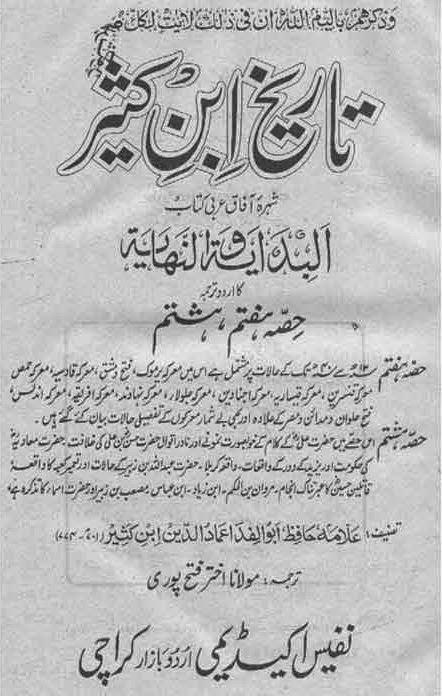 وذكرهم بايام الله ان فى ذلك لآيت لكل
تاریخ ابن کثیر
شہرۂ آفاق عربی کتاب
البداية والنهاية
کا اردو ترجمہ
حصہ ہفتم، ہشتم
حصہ ہفتم ۱۳ھ سے ۴۰ھ تک کے حالات پر مشتمل ہے اس میں معرکہ یرموک، فتح دمشق، معرکہ قادسیہ، معرکہ حمص
معرکہ قنسرین، معرکہ قیساریہ، معرکہ اجنادین، معرکہ جلولاء، معرکہ نہاوند، معرکہ افریقہ، معرکہ اندلس،
فتح حلوان و مدائن و مصر کے علاوہ اور بھی بے شمار معرکوں کے تفصیلی حالات بیان کئے گئے ہیں۔
حصہ ہشتم اس حصے میں حضرت علیؓ کے کلام کے خوبصورت نمونے اور نادر اقوال حضرت حسنؓ بن علی کی خلافت، حضرت معاویہؓ
کی حکومت اور یزید کے دور کے واقعات، واقعہ کربلا، حضرت عبداللہ بن زبیر کے حالات اور تعمیر کعبہ کا واقعہ
قاتلین حسینؓ کا عبرتناک انجام، مروان بن الحکم، ابن زیاد، ابن عباس، مصعب بن زبیر اور حضرت اسماء کا تذکرہ ہے،
تصنیف: علامہ حافظ ابوالفدا عماد الدین ابن کثیر (۷۰۱ھ۔۷۷۴)
ترجمہ: مولانا اختر فتح پوری
نفیس اکیڈیمی اردو بازار کراچی